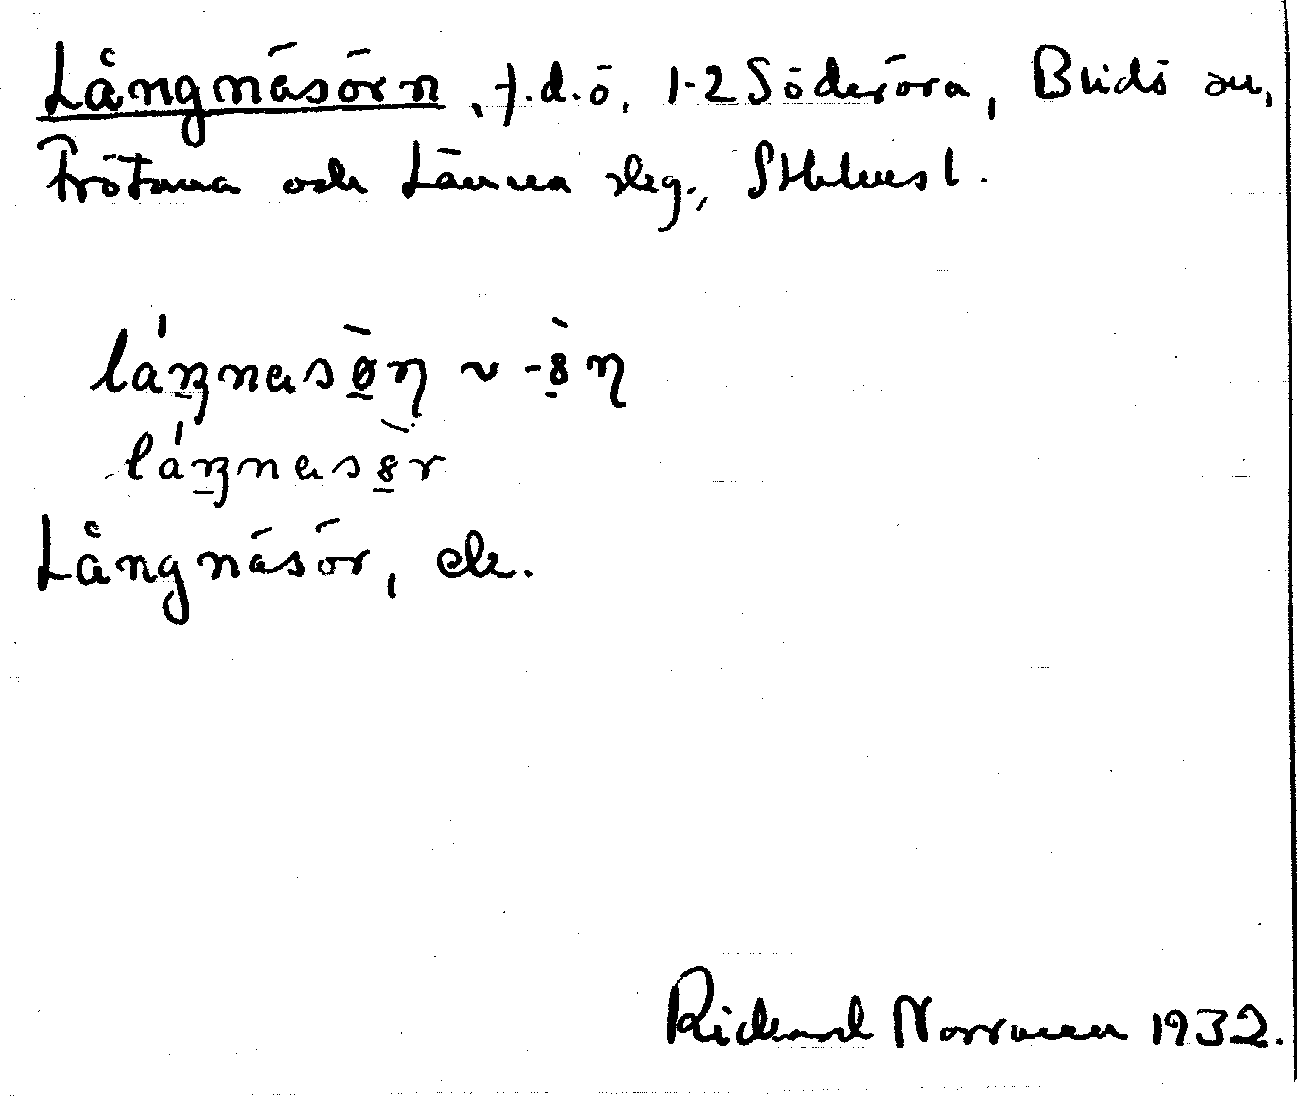 Långnäsörn, f.d.ö, 1-2 Söderöra, Blidö sn,
Frötuna och Länna slg., Sthlms l.
lánnasø̀n ~ -ö̀n
lánnasör
Långnäsör, ek.
Rickard Norrman 1932.